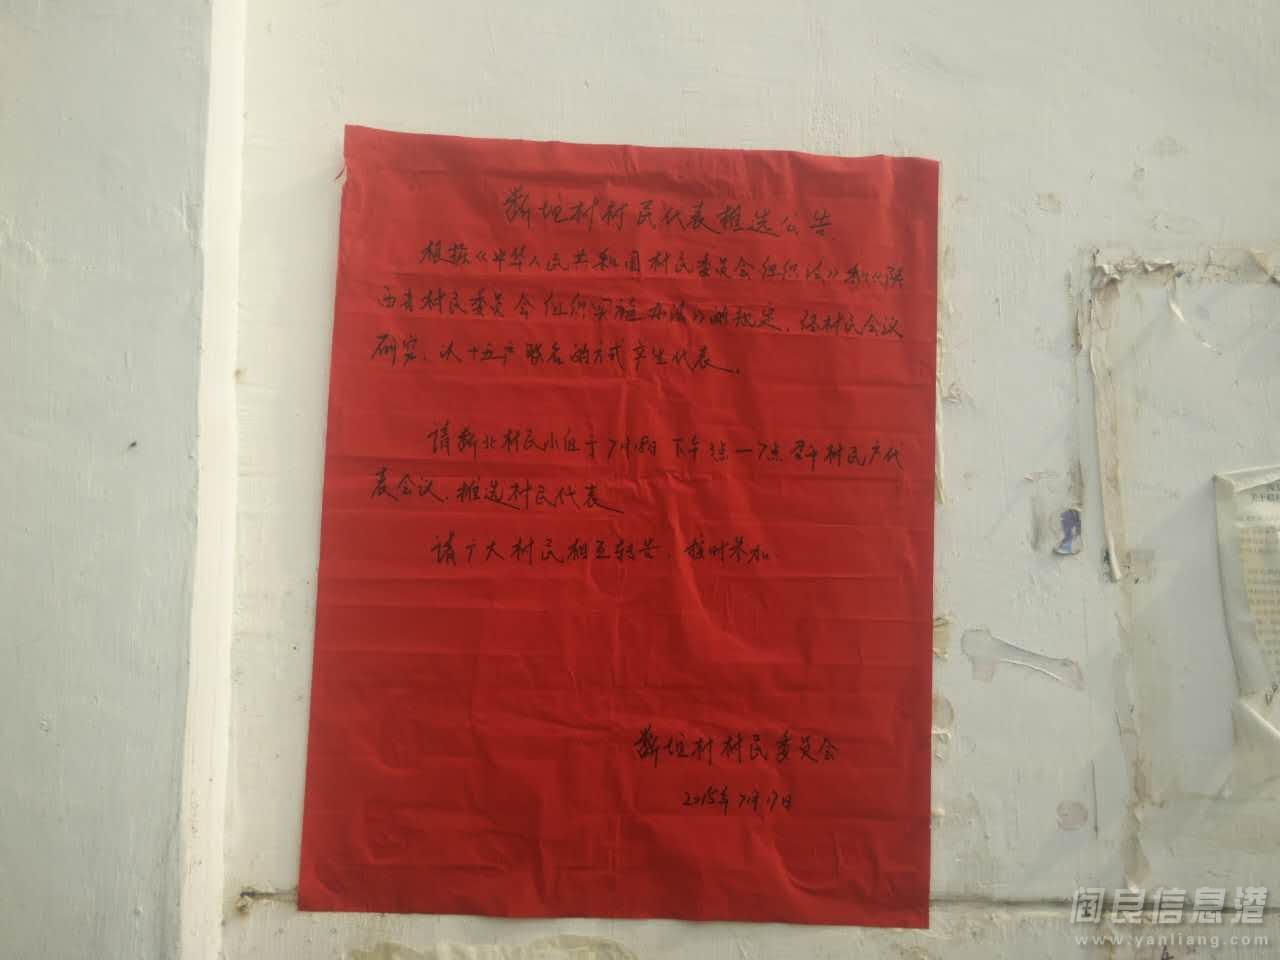 村村民代表推选公告
根据《中华人民共和国村民委员会组织法》和《陕
西省村民委员会组织实施办法》的规定，经村民会议
研究，以十五户联名的方式产生代表。
请新北村民小组于7月18日下午 点—7点召开村民户代
表会议，推选村民代表
请广大村民相互转告，按时参加
村村民委员会
2015年7月17日
阎良信息港
www.yanliang.cn